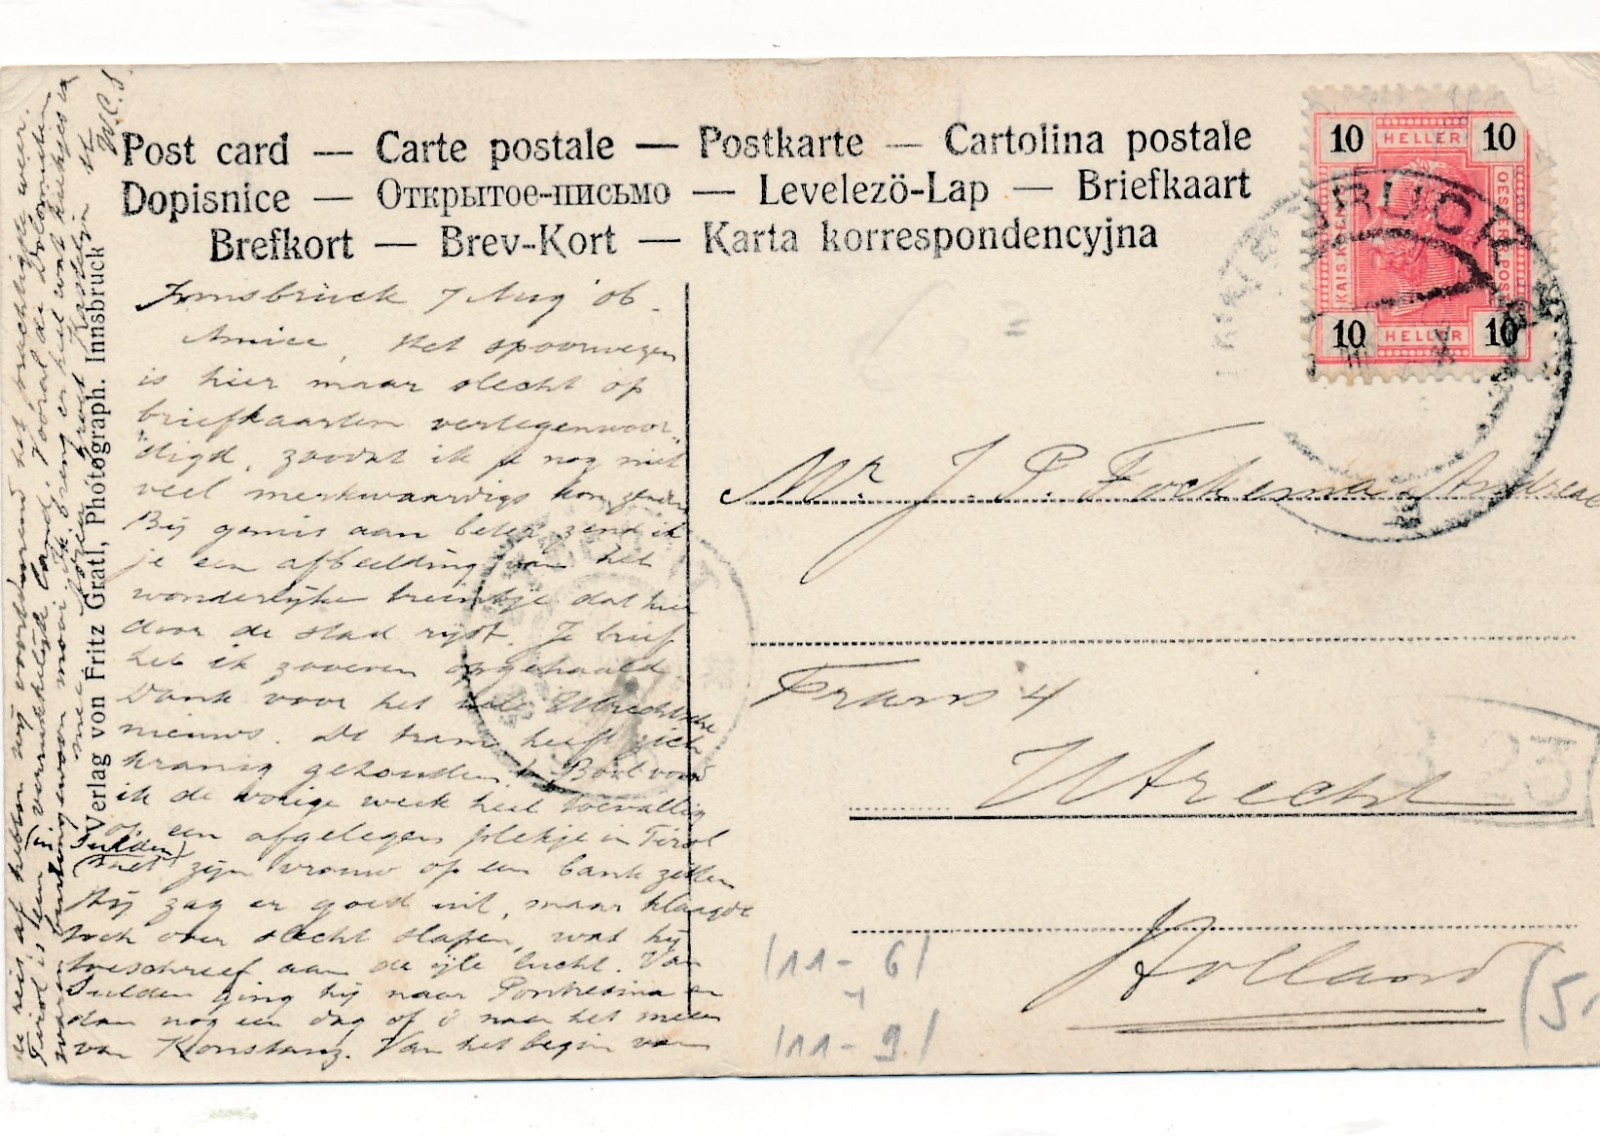 Post card — Carte postale — Postkarte — Cartolina postale
Dopisnice — Открытое-письмо — Levelezö-Lap — Briefkaart
Brefkort — Brev-Kort — Karta korrespondencyjna
10 HELLER 10
KAIS. KÖN.
OESTERR. POST
10 HELLER 10
Innsbruck 7 Aug '06.
Amice, Het spoorwegen
is hier maar slecht op
briefkaarten vertegenwoor-
digd, zoodat ik je nog niet
veel merkwaardigs kon zenden
Bij gemis aan beter zend ik
je een afbeelding van het
wonderlijke treintje dat hier
door de stad rijdt. Je brief
heb ik zooeven opgehaald.
Dank voor het Utrechtsche
nieuws. De tram heeft zich
kranig gehouden. vond
ik de vorige week heel toevallig
op een afgelegen plekje in Tirol
(in Sulden)
met zijn vrouw op een bank zitten
Hij zag er goed uit, maar klaagde
toch over slecht slapen, wat hij
toeschreef aan de ijle lucht. Van
Sulden ging hij naar Pontresina en
dan nog een dag of 6 naar het meer
van Konstanz. Van het begin van
de reis af hebben wij voortdurend het prachtigste weer.
Tirol is een verrukkelijk land. Vooral de Dolomieten
waren buitengewoon mooi. Ik breng er heel wat kiekjes van
mee.
Verlag von Fritz Gratl, Photograph. Innsbruck
Mr. J. P. Fockema Andreae
Frans 4
Utrecht
Holland
111-61
111-91